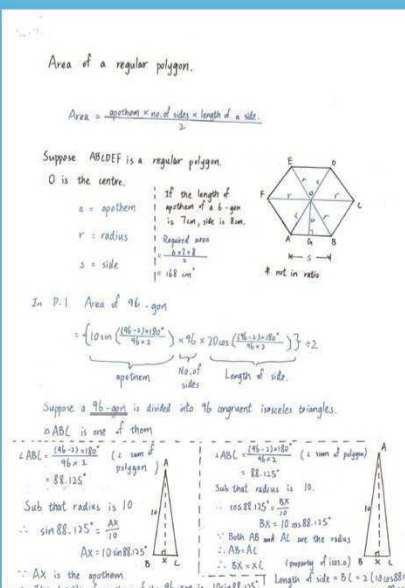 Area of a regular polygon.
Area = apothem × no. of sides × length of a side.
2
Suppose ABCDEF is a regular polygon.
O is the centre.
a = apothem
r = radius
s = side
If the length of
apothem of a 6-gon
is 7cm, side is 8cm.
Required area
= 6×7×8
2
= 168 cm²
E D
F r r C
r r
A G B
S
* not in ratio
In P.1. Area of 96-gon
= {10sin((96-2)×180°/96×2) × 96 × 20cos((96-2)×180°/96×2)} ÷2
apothem No. of sides Length of side.
Suppose a 96-gon is divided into 96 congruent isosceles triangles.
△ABC is one of them
∠ABC = (96-2)×180°/96×2 (∠ sum of polygon)
= 88.125°
Sub that radius is 10
∴ sin88.125° = AX/10
AX = 10sin88.125°
∵ AX is the apothem
A
10
B X C
∠ABC = (96-2)×180°/96×2 (∠ sum of polygon)
= 88.125°
Sub that radius is 10.
∴ cos88.125° = BX/10
BX = 10cos88.125°
∵ Both AB and AC are the radius
∴ AB=AC
∴ BX=XC (property of isos.△)
A
10
B X C